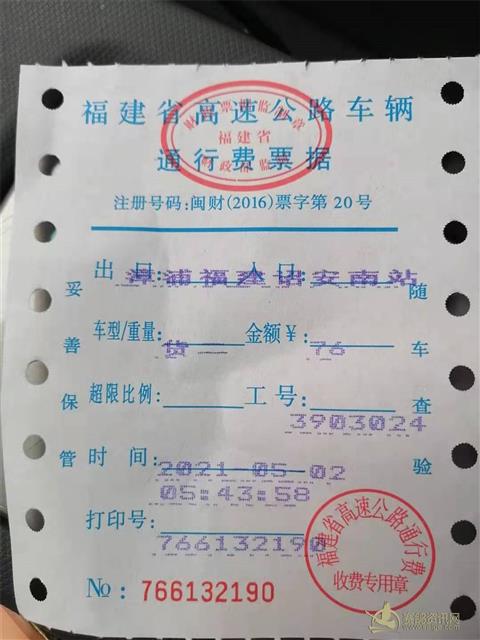 福建省高速公路车辆
通行费票据
福建省
注册号码:闽财(2016)票字第20号
出口: 漳浦福建 入口: 诏安南站
车型/重量: 货 金额¥: 76
超限比例: 工号:
3903024
时间: 2021-05-02
05:43:58
打印号:
766132190
No: 766132190
妥善保管
随车查验
福建省高速公路通行费
收费专用章